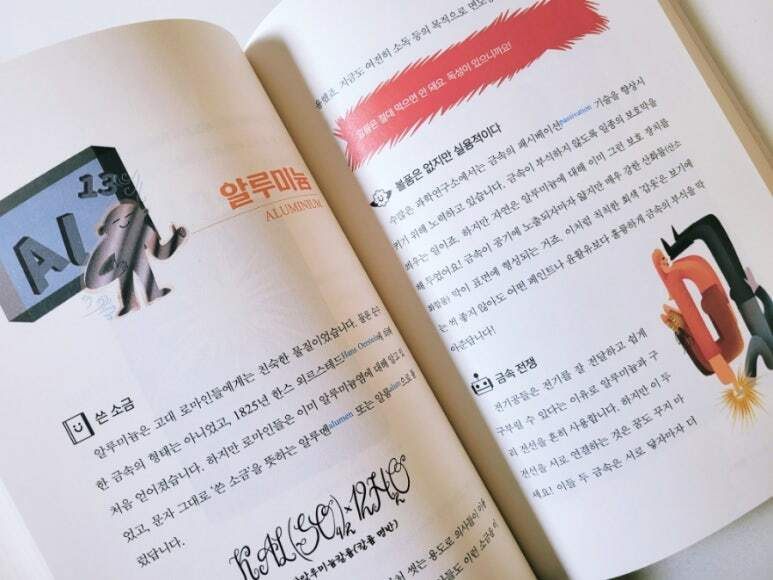 13
Al
알루미늄
ALUMINIUM
쓴 소금
알루미늄은 고대 로마인들에게는 친숙한 물질이었습니다. 물론 순
한 금속의 형태는 아니었고, 1825년 한스 외르스테드Hans Oersted에 의해
처음 얻어졌습니다. 하지만 로마인들은 이미 알루미늄염에 대해 알고 있
었고, 문자 그대로 '쓴 소금'을 뜻하는 알루멘alumen 또는 알룸alum으로 불
렀답니다.
KAl(SO₄)₂×12H₂O
황산알루미늄칼륨(칼륨 명반)
씻는 용도로 의사들이
이런 소금을
지금도 여전히 소독 등의 목적으로 면도
칼륨은 절대 먹으면 안 돼요. 독성이 있으니까요!
볼품은 없지만 실용적이다
수많은 과학연구소에서는 금속의 패시베이션passivation 기술을 향상시
키기 위해 노력하고 있습니다. 금속이 부식하지 않도록 일종의 보호막을
씌우는 일이죠. 하지만 자연은 알루미늄에 대해 이미 그런 보호 장치를
해 두었어요! 금속이 공기에 노출되자마자 얇지만 매우 강한 산화물(산소
화합물) 막이 표면에 형성되는 거죠. 이처럼 칙칙한 회색 '겉옷'은 보기에
는 썩 좋지 않아도 어떤 페인트나 윤활유보다 훌륭하게 금속의 부식을 막
아준답니다!
금속 전쟁
전기공들은 전기를 잘 전달하고 쉽게
구부릴 수 있다는 이유로 알루미늄과 구
리 전선을 흔히 사용합니다. 하지만 이 두
전선을 서로 연결하는 것은 꿈도 꾸지 마
세요! 이들 두 금속은 서로 닿자마자 더